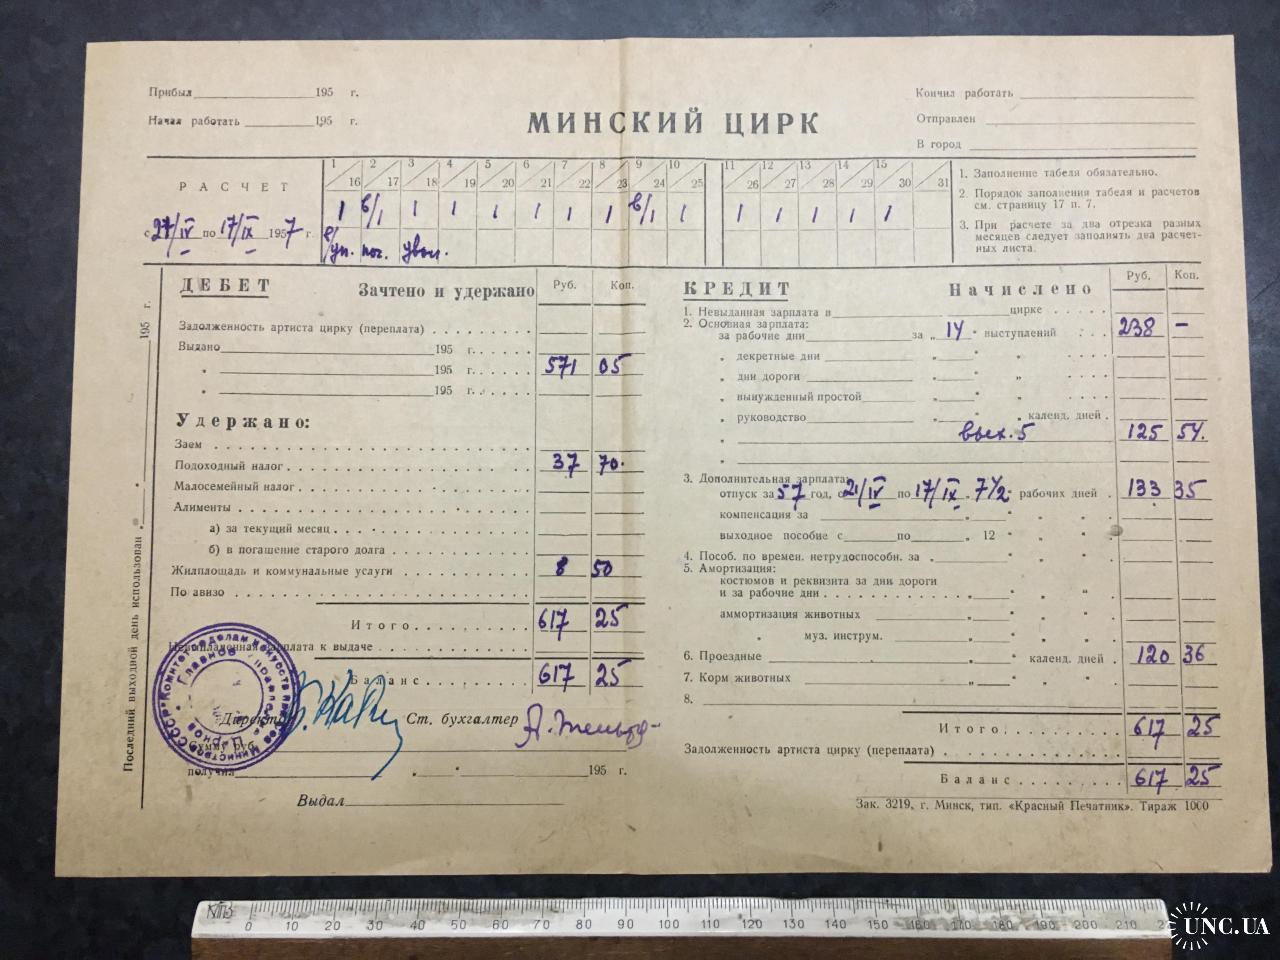 Прибыл 195 г.
Начал работать 195 г.
МИНСКИЙ ЦИРК
Кончил работать
Отправлен
В город
РАСЧЕТ
с 27/IV по 17/IX 1957 г.
1 2 3 4 5 6 7 8 9 10 11 12 13 14 15
16 17 18 19 20 21 22 23 24 25 26 27 28 29 30 31
1 в/1 1 1 1 1 1 1 в/1 1 1 1 1 1 1
1. Заполнение табеля обязательно.
2. Порядок заполнения табеля и расчетов
см. страницу 17 п. 7.
3. При расчете за два отрезка разных
месяцев следует заполнять два расчет-
ных листа.
ДЕБЕТ Зачтено и удержано Руб. Коп.
Задолженность артиста цирку (переплата)
Выдано 195 г.
" 195 г. 571 05
" 195 г.
Удержано:
Заем
Подоходный налог 37 70
Малосемейный налог
Алименты
а) за текущий месяц
б) в погашение старого долга
Жилплощадь и коммунальные услуги 8 50
По авизо
Итого 617 25
зарплата к выдаче
Баланс 617 25
Директор Ст. бухгалтер
Сумму руб.
получил " " 195 г.
Выдал
Последний выходной день использован " " 195 г.
КРЕДИТ Начислено Руб. Коп.
1. Невыданная зарплата в цирке
2. Основная зарплата:
за рабочие дни за „ 14 " выступлений 238 —
„ декретные дни „ " "
„ дни дороги „ " "
„ вынужденный простой „ "
„ руководство „ " календ. дней
„ вых. 5 125 54.
„
3. Дополнительная зарплата:
отпуск за 57 год, с 21/IV по 17/IX „ 7 1/2 " рабочих дней 133 35
компенсация за „ " " "
выходное пособие с по „ 12 " " "
4. Пособ. по времен. нетрудоспособн. за " " "
5. Амортизация:
костюмов и реквизита за дни дороги
и за рабочие дни „ " "
аммортизация животных " " "
" муз. инструм. " " "
6. Проездные " календ. дней 120 36
7. Корм животных „ " " "
8.
Итого 617 25
Задолженность артиста цирку (переплата)
Баланс 617 25
Зак. 3219, г. Минск, тип. «Красный Печатник». Тираж 1000
0 10 20 30 40 50 60 70 80 90 100 110 120 130 140 150 160 170 180 190 200 210
UNC.UA